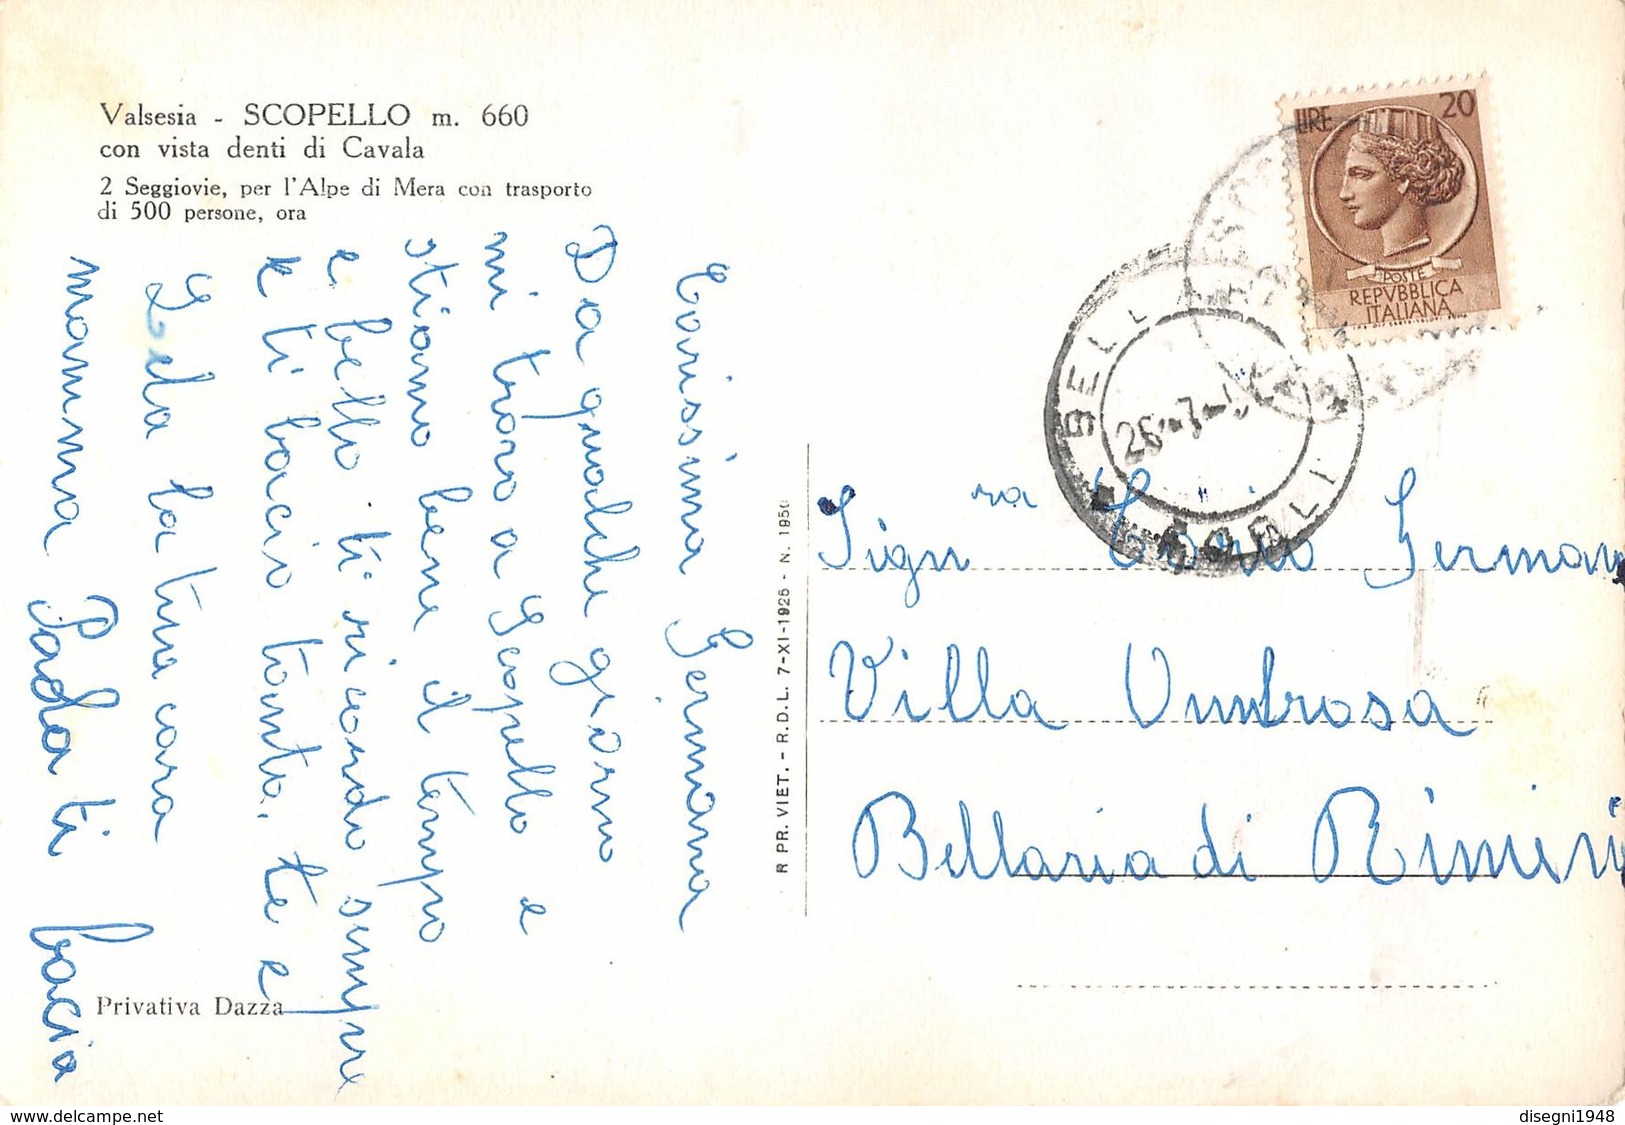 Valsesia - SCOPELLO m. 660
con vista denti di Cavala
2 Seggiovie, per l'Alpe di Mera con trasporto
di 500 persone, ora
Carissima Germana
Da qualche giorno
mi trovo a Scopello e
stiamo bene il tempo
e bello ti ricordo sempre
e ti bacio tanto, te e
la tua cara
mamma Paola ti bacia
Privativa Dazza
R PR. VIET. - R.D.L. 7-XI-1926 - N. 1950
LIRE 20
POSTE
REPVBBLICA
ITALIANA
BELL
26-7-
Sign ra Germana
Villa Ombrosa
Bellaria di Rimini
disegni1948